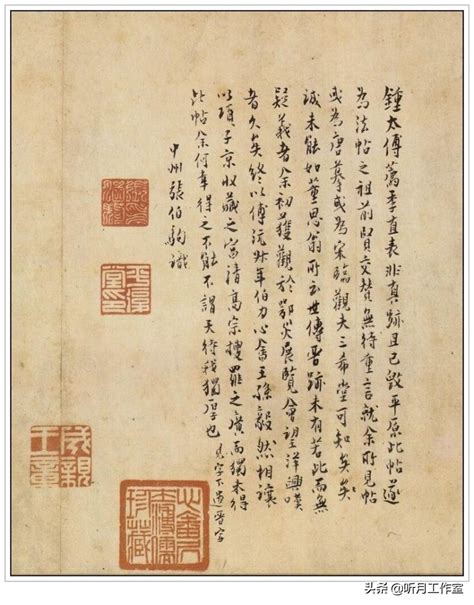 鍾太傅薦季直表非真跡且已毀平原此帖遂
為法帖之祖前賢交贊無待重言就余所見帖
或為唐摹或為宋臨觀夫三希堂可知矣矣
誠未能如董思翁所云世傳晉跡未有若此而無
疑義者余初獲觀於鄂災展覽會望洋興嘆
者久矣終以傅沅叔年伯力心畬王孫毅然相讓
以項子京收藏之富清高宗搜羅之廣而獨未得
此帖余何幸得之不能不謂天待我獨厚也 見字下遺晉字
中州張伯駒識
平復堂印
成親王章
头条 @听月工作室